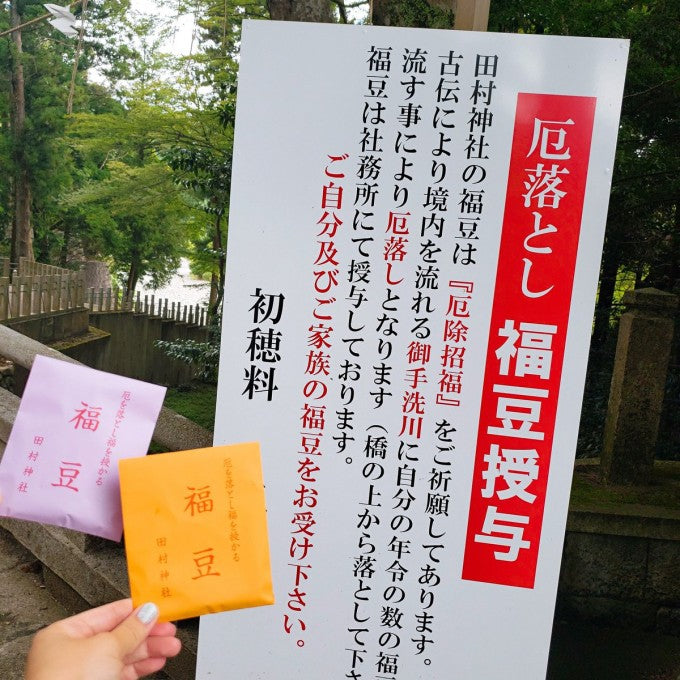 厄落とし 福豆授与
田村神社の福豆は『厄除招福』をご祈願してあります。
古伝により境内を流れる御手洗川に自分の年令の数の福
流す事により厄落しとなります（橋の上から落として下さ
福豆は社務所にて授与しております。
ご自分及びご家族の福豆をお受け下さい。
初穂料
厄を落とし福を授かる
福豆
田村神社
厄を落とし福を授かる
福豆
田村神社